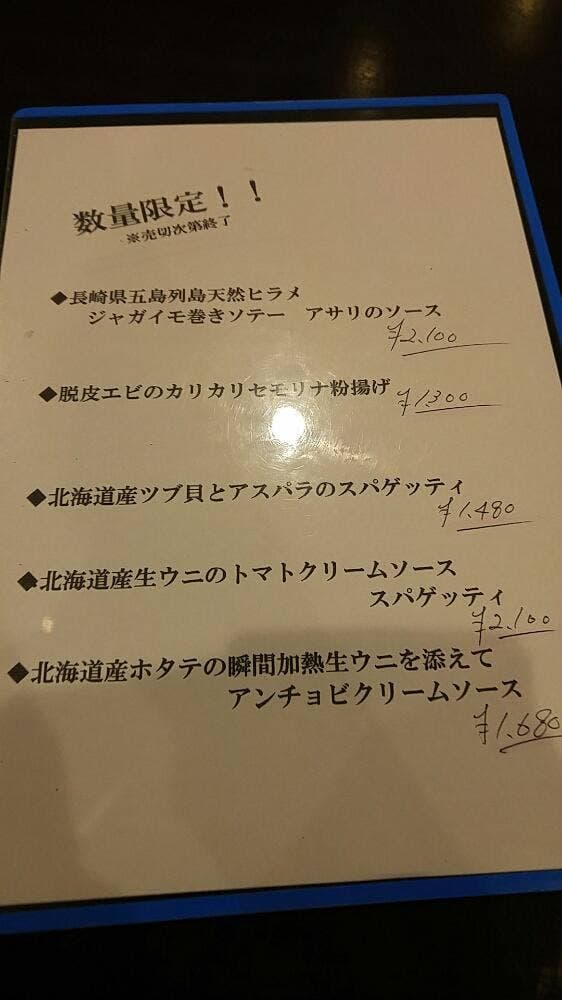 数量限定！！
※売切次第終了
◆長崎県五島列島天然ヒラメ
ジャガイモ巻きソテー　アサリのソース
¥2.100
◆脱皮エビのカリカリセモリナ粉揚げ
¥1.300
◆北海道産ツブ貝とアスパラのスパゲッティ
¥1.480
◆北海道産生ウニのトマトクリームソース
スパゲッティ
¥2.100
◆北海道産ホタテの瞬間加熱生ウニを添えて
アンチョビクリームソース
¥1.680